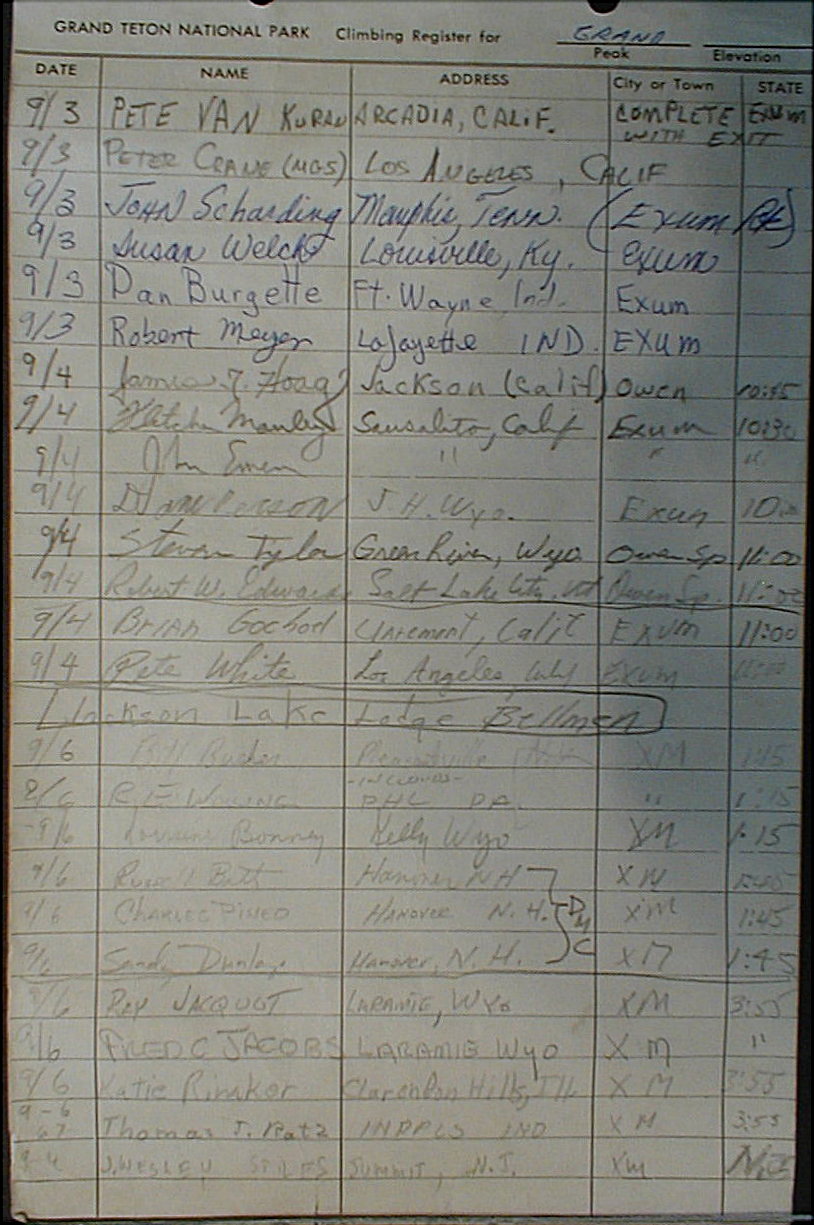 GRAND TETON NATIONAL PARK Climbing Register for GRAND
Peak Elevation
DATE NAME ADDRESS City or Town STATE
9/3 PETE VAN KURAN ARCADIA, CALIF. COMPLETE EXUM
WITH EXIT
9/3 PETER CRANE (MGS) LOS ANGELES, CALIF
9/3 JOHN Scharding Memphis, Tenn. (Exum Rt)
9/3 Susan Welch Louisville, Ky. exum
9/3 Dan Burgette Ft. Wayne, Ind. Exum
9/3 Robert Meyer Lafayette IND. EXUM
9/4 James Hoag Jackson (Calif) Owen 10:45
9/4 Manley Sausalito, Calif Exum 10:30
9/4 John " " "
9/4 J.H. Wyo. Exum
9/4 Steven Tyler Green River, Wyo Owen Sp 11:00
9/4 Robert W. Edwards Salt Lake City, Ut Owen Sp. 11:00
9/4 BRIAN Calif EXUM 11:00
9/4 Pete White Los Angeles, Calif Exum 11:00
Jackson Lake Lodge Bellmen
9/6 Bill XM 1:15
-IN CLOUDS-
PHL PA. " 1:15
9/6 Lorraine Bonney Kelly Wyo XM 1:15
9/6 Russell Hanover NH XM
9/6 CHARLES PINEO HANOVER N.H. DMC XM 1:45
9/6 Sandy Dunlap Hanover, N.H. XM 1:45
9/6 RAY JACQUOT LARAMIE, WYO XM 3:55
9/6 FRED C JACOBS LARAMIE WYO XM "
9/6 Katie Clarendon Hills, Ill. XM 3:55
9-6 67 Thomas J. Ratz INDPLS IND XM 3:55
J. WESLEY STILES SUMMIT, N.J. XM